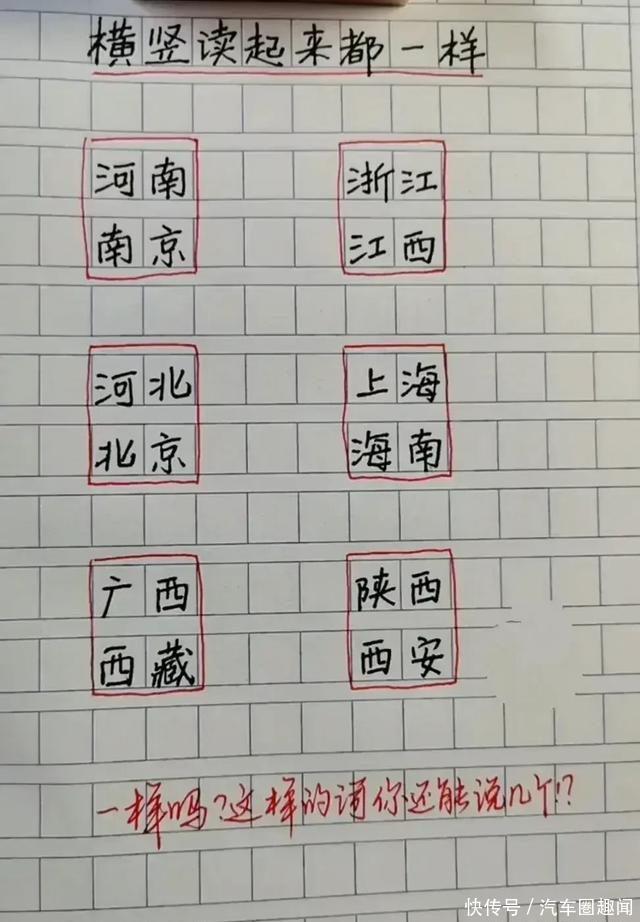 横竖读起来都一样
河南 浙江
南京 江西
河北 上海
北京 海南
广西 陕西
西藏 西安
一样吗?这样的词你还能说几个!?
快传号/汽车圈趣闻